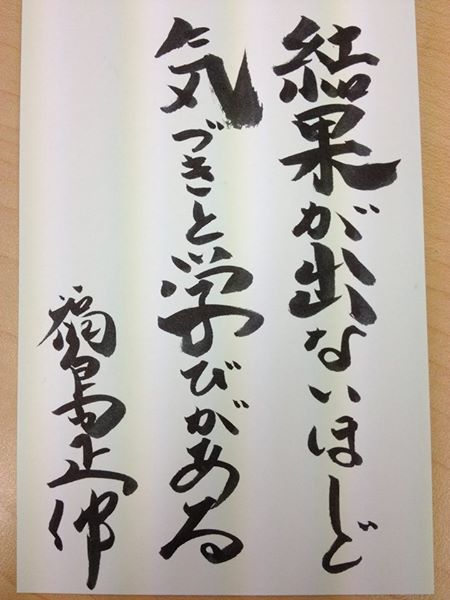 結果が出ないほど
気づきと学びがある
福島正伸